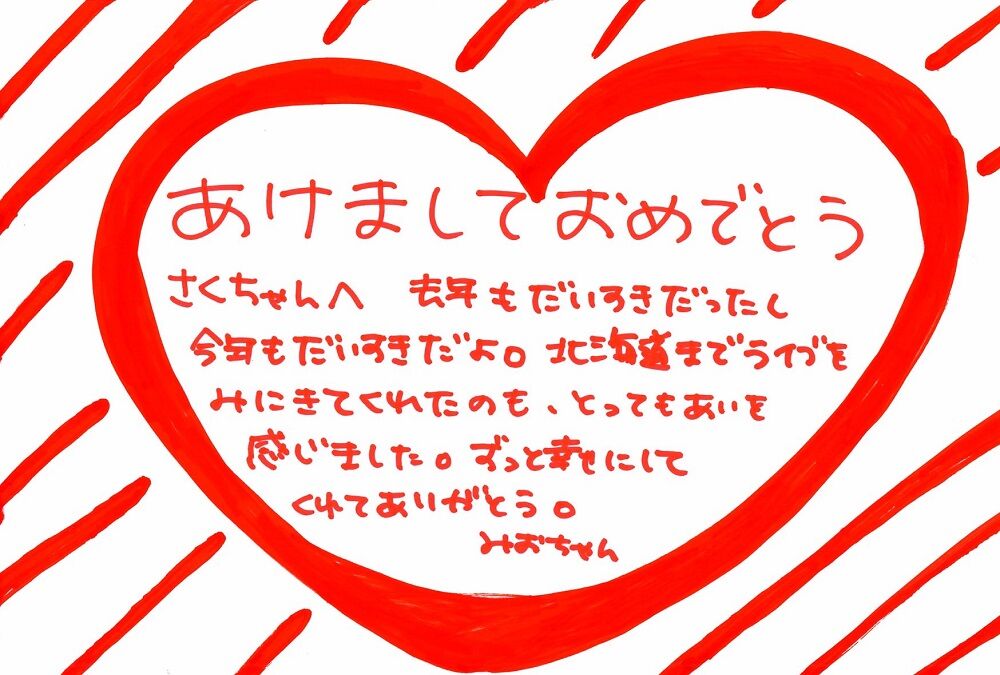 あけましておめでとう
さくちゃんへ 去年もだいすきだったし
今年もだいすきだよ。北海道までライブを
みにきてくれたのも、とってもあいを
感じました。ずっと幸せにして
くれてありがとう。
みおちゃん